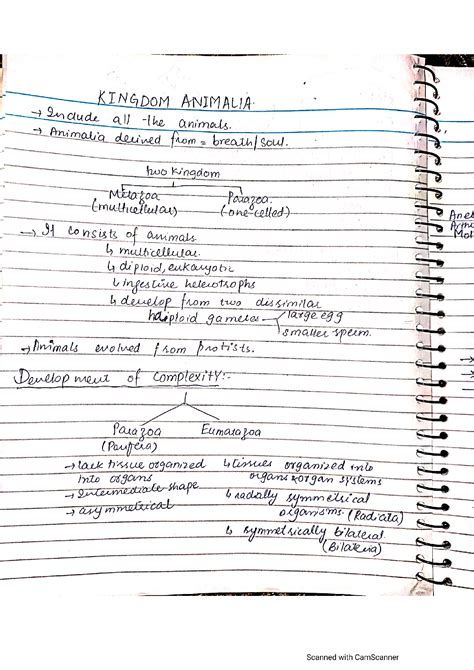 KINGDOM ANIMALIA.
→ Include all the animals.
→ Animalia derived from = breath/soul.
two kingdom
Metazoa Parazoa.
(multicellular) (one-celled)
→ It consists of animals
↳ multicellular.
↳ diploid, eukaryotic
↳ ingestive heterotrophs
↳ develop from two dissimilar
haploid gametes large egg
smaller sperm.
→ Animals evolved from protists.
Development of Complexity:-
Parazoa Eumatazoa
(Porifera)
→ lack tissue organized ↳ tissues organized into
into organs organs & organ systems
→ Intermediate shape ↳ radially symmetrical
→ asymmetrical organisms. (Radiata)
↳ symmetrically bilateral
(Bilateria)
Mot
Scanned with CamScanner